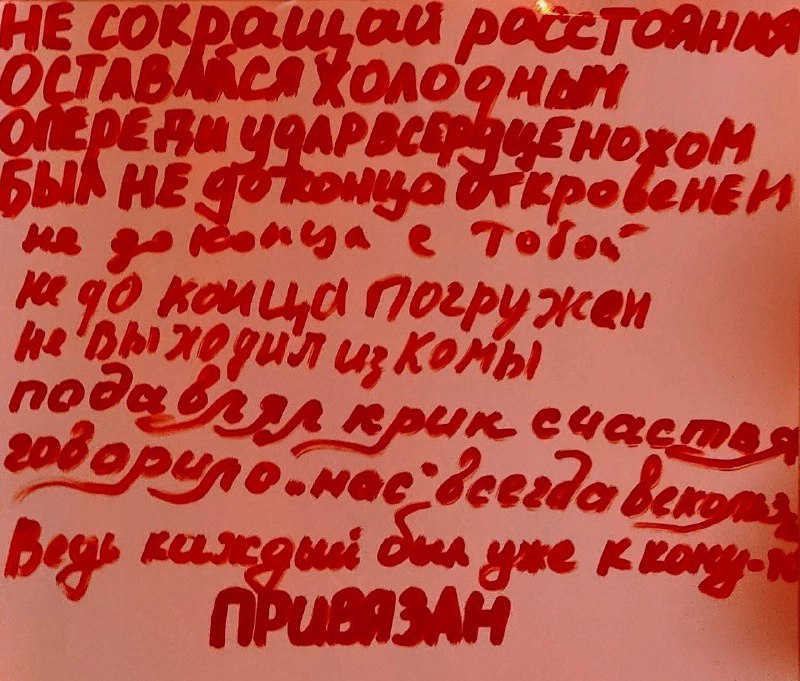 НЕ СОКРАЩАЙ РАССТОЯНИЯ
ОСТАВАЙСЯ ХОЛОДНЫМ
ОПЕРЕДИ УДАР В СЕРДЦЕ НОЖОМ
БЫЛ НЕ ДО КОНЦА ОТКРОВЕНЕН
не до конца с тобой
не до конца погружен
не выходил из комы
подавлял крик счастья
говорило „нас“ всегда вскользь
Ведь каждый был уже к кому-то
ПРИВЯЗАН